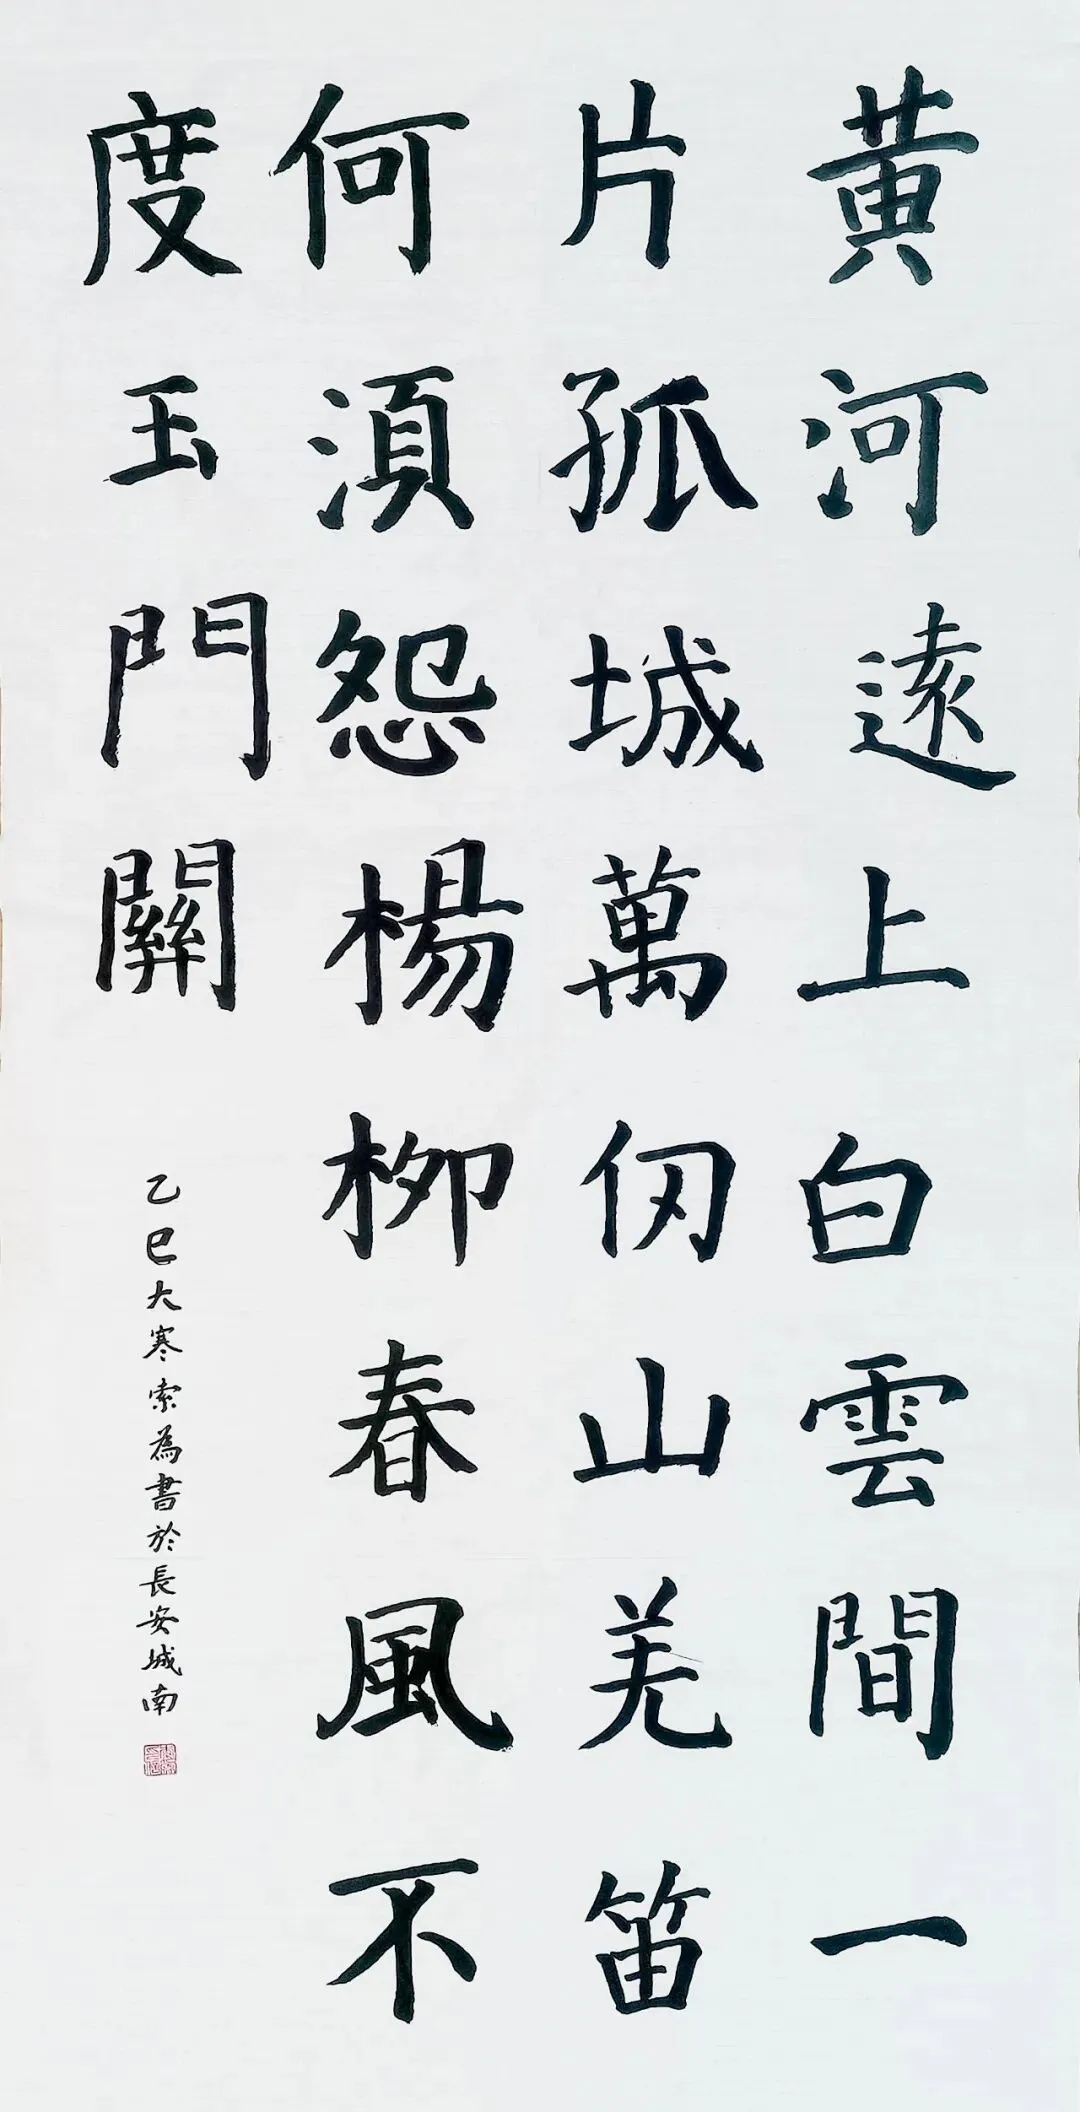 黃河遠上白雲間一
片孤城萬仞山羌笛
何須怨楊柳春風不
度玉門關
乙巳大寒索為書於長安城南